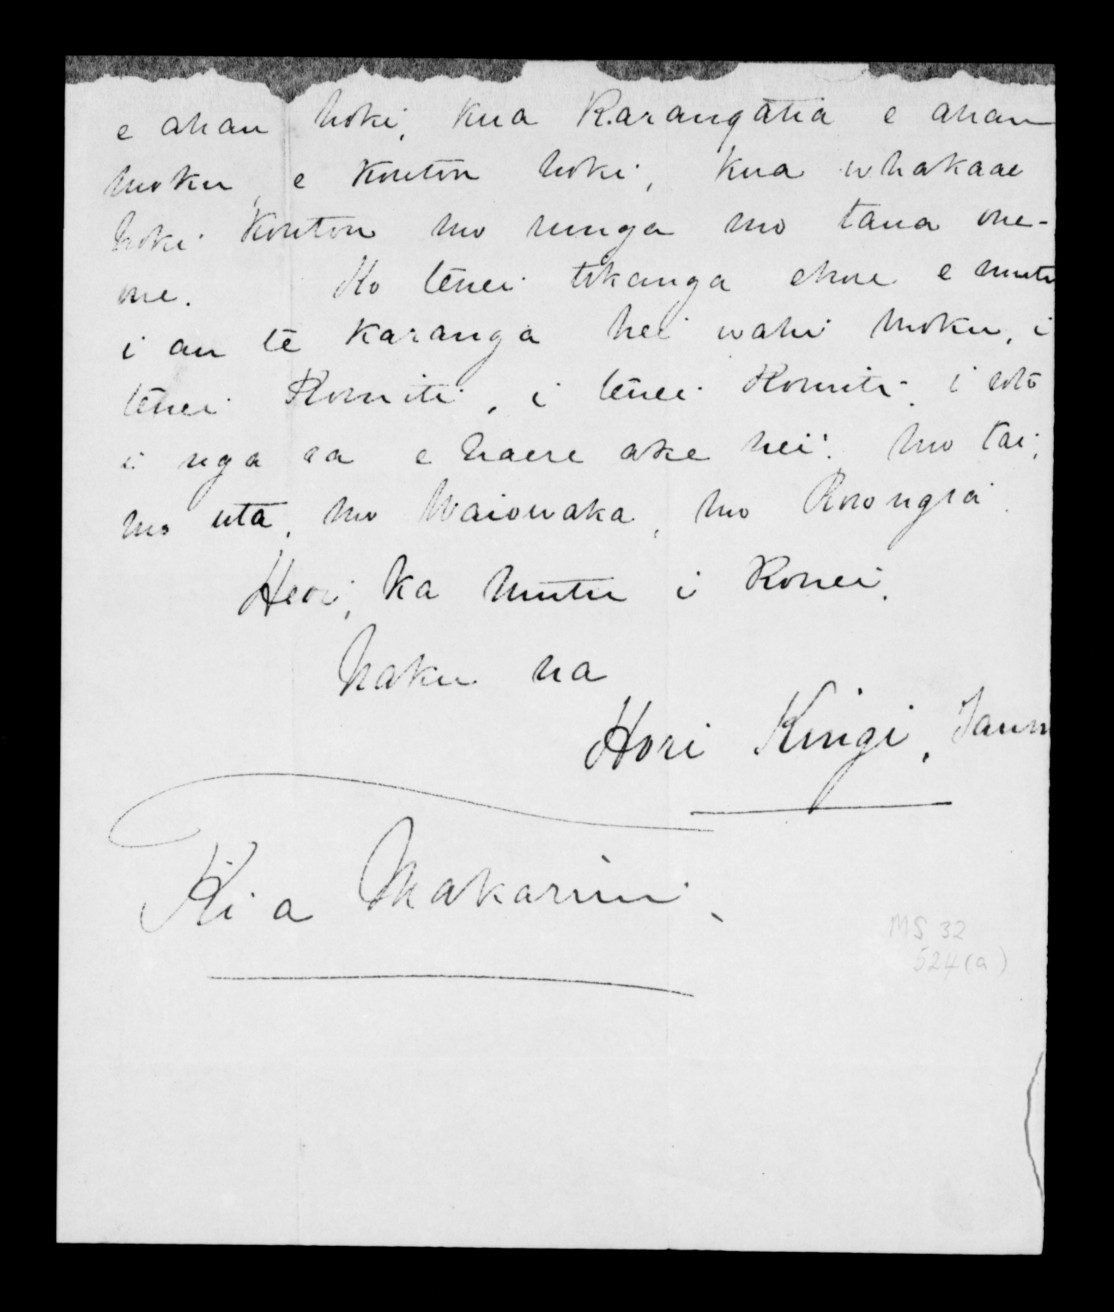 e ahau hoki, kua karangatia e ahau
moku, e koutou hoki, kua whakaae
hoki koutou mo runga mo taua one-
one. Ko tenei tikanga ekore e mutu
i au te karanga hei wahi moku, i
tenei Komiti, i tenei Komiti, i roto
i nga ra e haere ake nei. Mo tai,
mo uta, mo
Heoi, ka mutu i konei.
Naku na
Hori Kingi,
Kia Makarini.
MS 32
524(a)